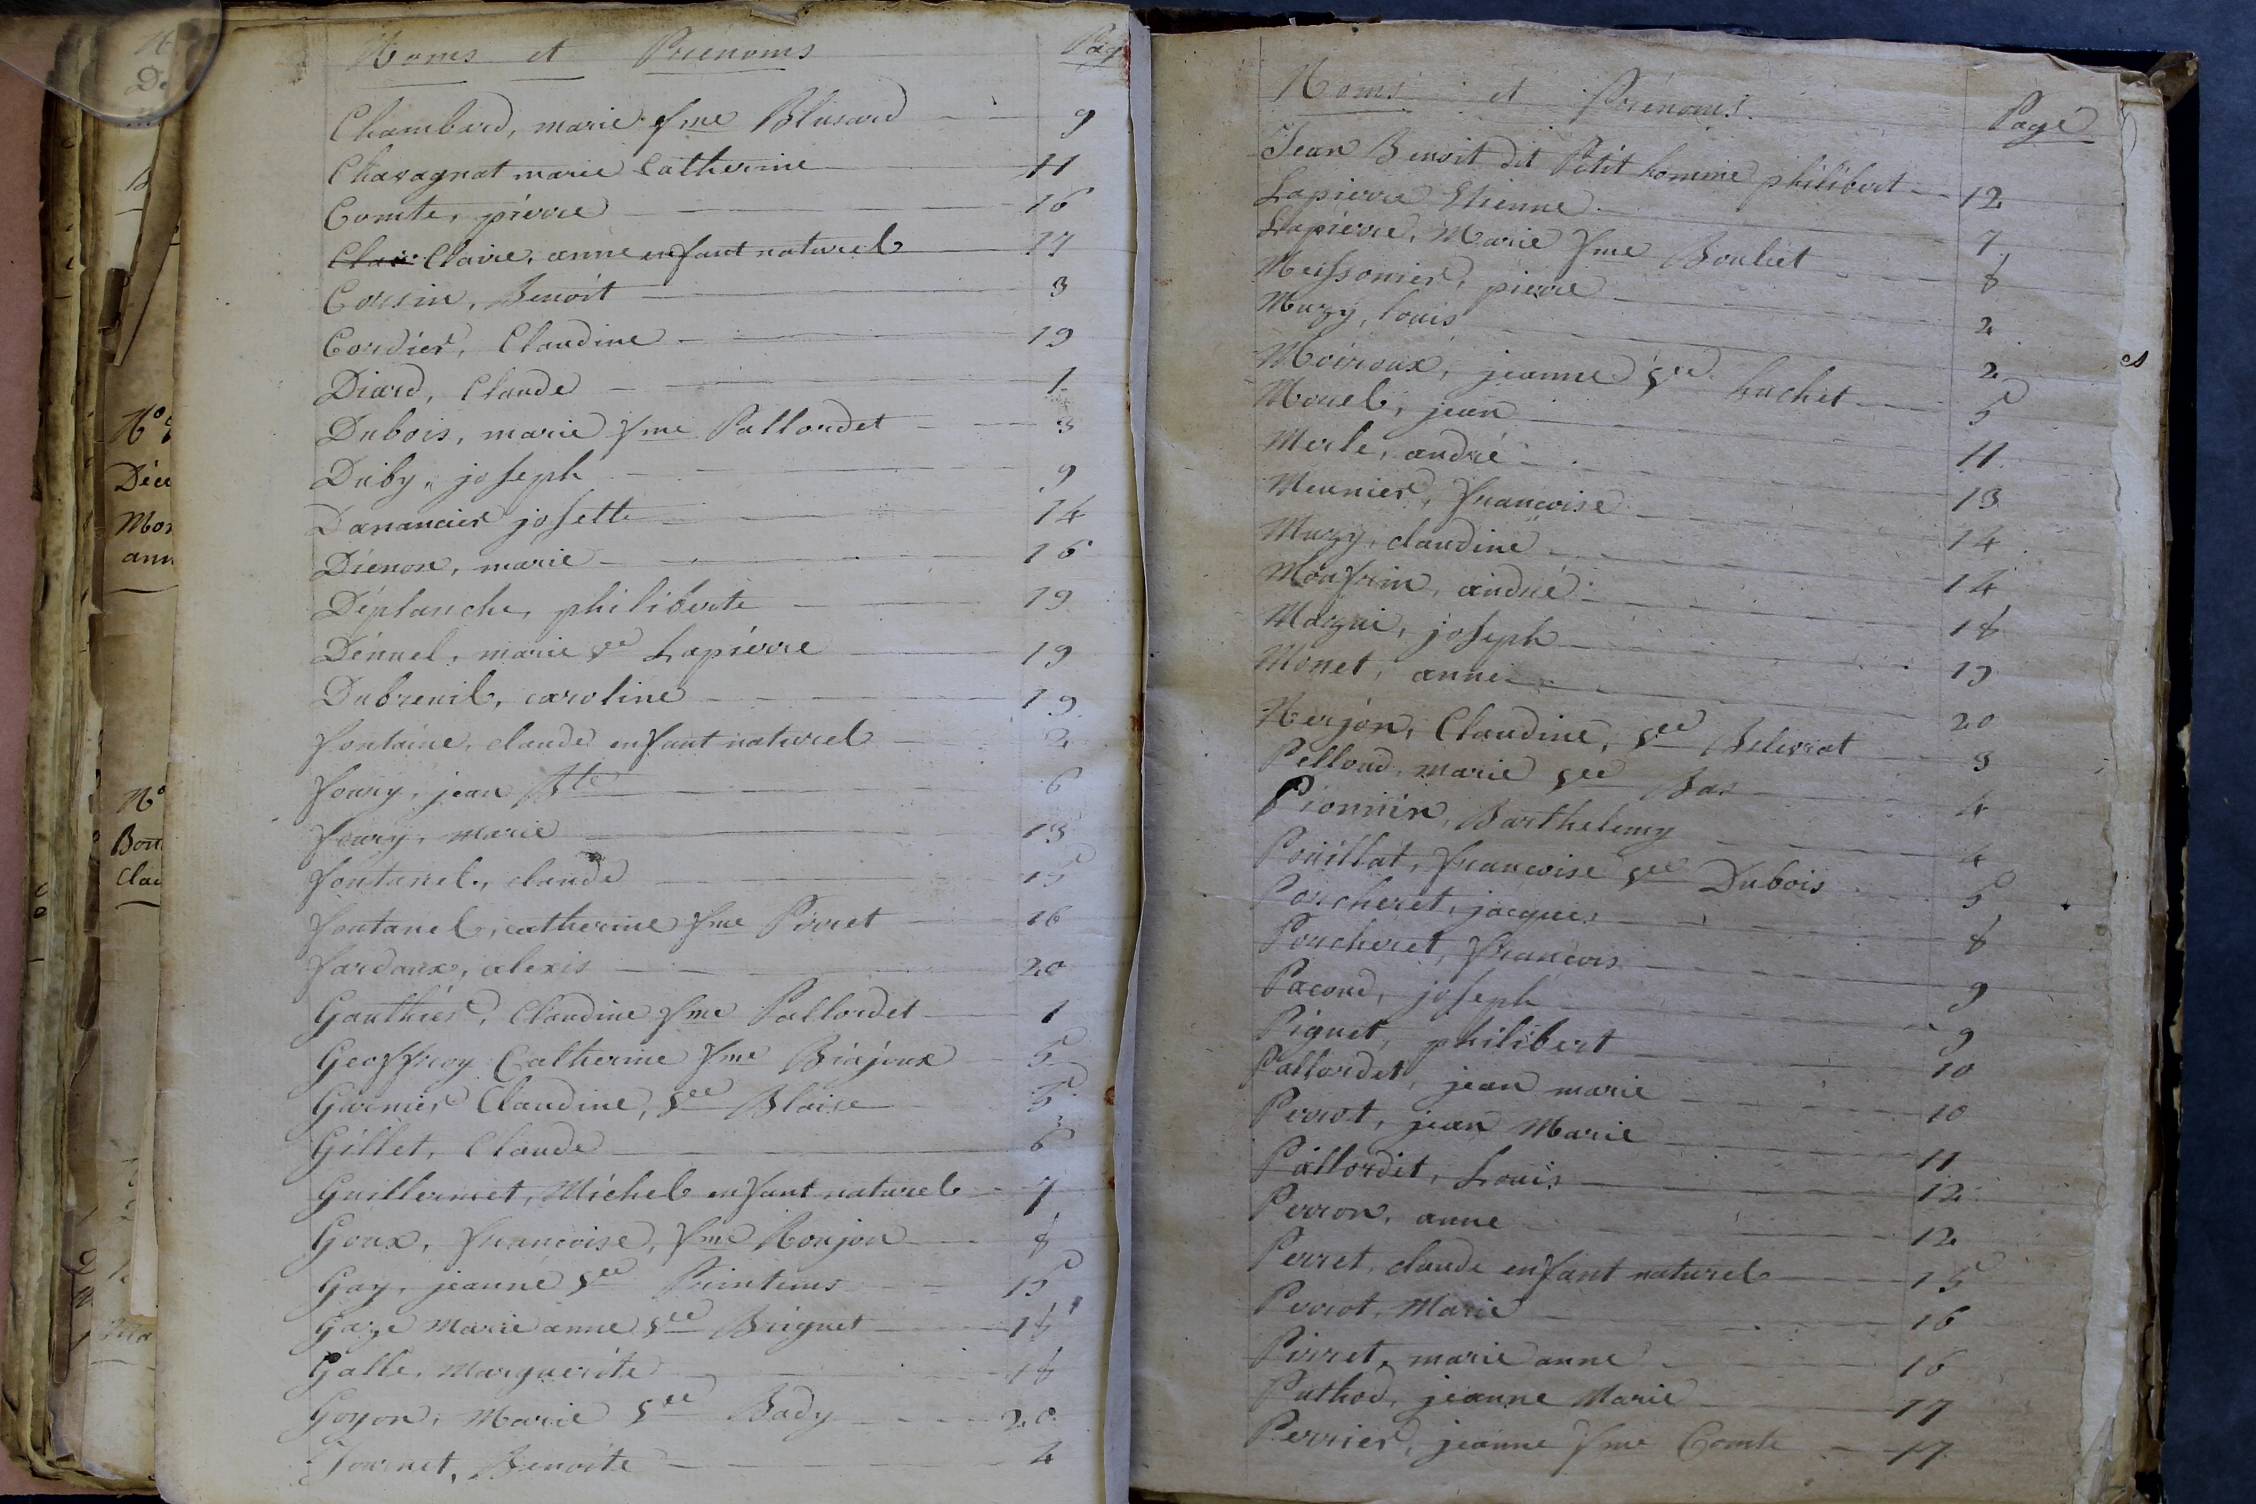 Noms et Prénoms Pag
Chambard, marie fme Blusard 9
Chavagnat marie Catherine 11
Comte, pierre 16
Clair Claire, anne enfant naturel 17
Corsin, Benoit 3
Cordier, Claudine 19
Diard, Claude 1
Dubois, marie fme Pallordet 3
Duby, joseph 9
Danancier josette 14
Diénon, marie 16
Déplanche, philiberte 19
Dénuel, marie ve Lapierre 19
Dubreuil, caroline 19
fontaine, claude enfant naturel 2
foury, jean Bte 6
foury, marie 13
fontanel, claude 15
fontanel, catherine fme Pirret 16
fardoux, alexis 20
Gauthier, Claudine fme Pallordet 1
Geoffroy Catherine fme Biajoux 5
Garnier Claudine, vee Blaise 5
Gillet, Claude 6
Guillermet, Michel enfant naturel 7
Goux, françoise, fme Ronjon 8
Gay, jeanne vee Printems 15
Gaze Marie anne vee Briguet 18
Galle, Marguerite 18
Goyon, Marie vee Bady 20
Journet, Benoite 4
Noms et Prénoms Page
Jean Benoit dit Petit homme philibert 12
Lapierre Etienne 7
Lapierre, Marie fme Bouliet 8
Meissonier, pierre 2
Muzy, louis 2
Moiroux, jeanne vee huchet 5
Morel, jean 11
Merle, andré 13
Meunier, françoise 14
Muzy, claudine 14
Monfrin, andré 18
Mazui, joseph 19
Monet, anne 20
Nerjon, Claudine, vee Belevrat 3
Pelloud, marie vee Bas 4
Pionnier, Barthelemy 4
Pouillat, françoise vee Dubois 5
Porcheret, jacques 8
Porcheret, françois 9
Pacoud, joseph 9
Piguet, philibert 10
Pallordet, jean marie 10
Perrot, jean Marie 11
Pallordet, Louis 12
Perron, anne 12
Perret, claude enfant naturel 15
Perrot, Marie 16
Pirret, marie anne 16
Puthod, jeanne Marie 17
Perrier, jeanne fme Comte 17